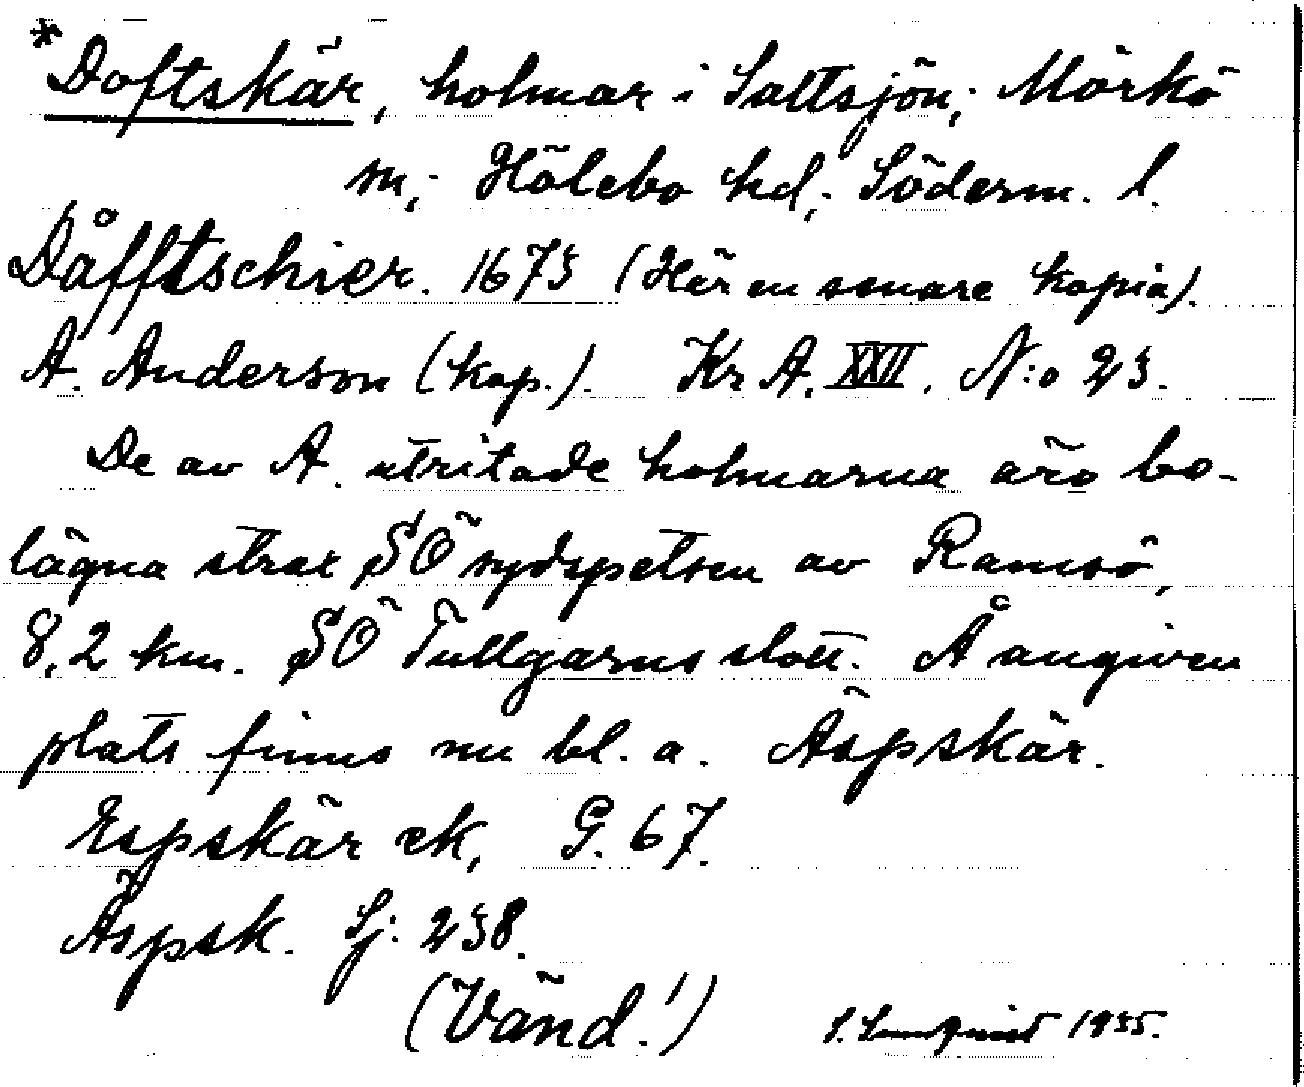 *Doftskär, holmar i Saltsjön; Mörkö
sn; Hölebo hd; Söderm. l.
Dåfftschier. 1673 (Här en senare kopia).
A. Anderson (kop.). Kr A. XXII. N:o 23.
De av A. utritade holmarna äro be-
lägna strax SO sydspetsen av Ramsö,
8,2 km. SO Tullgarns slott. Å angiven
plats finns nu bl. a. Äspskär.
Espskär ek, G. 67.
Äspsk. Sj: 238.
(Vänd!) S. Lundquist 1935.